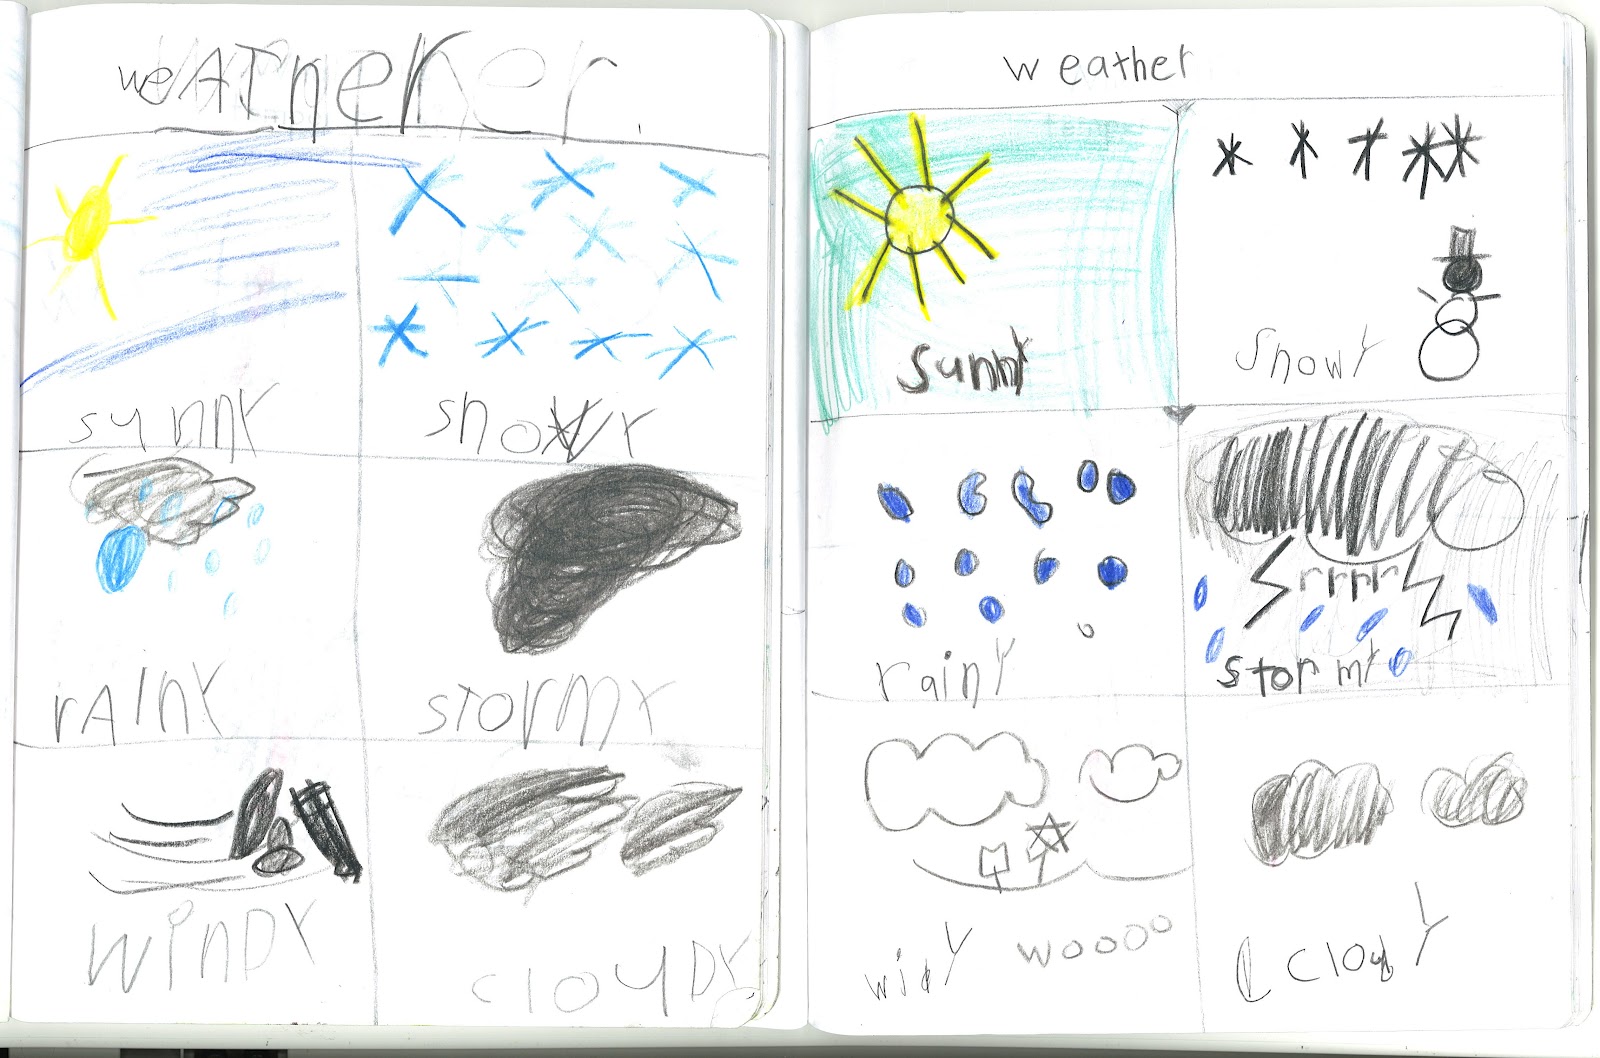 weather
sunny
snowy
rainy
stormy
windy
cloudy
weather
sunny
snowy
rainy
rrrrr
stormy
widy woooo
cloudy